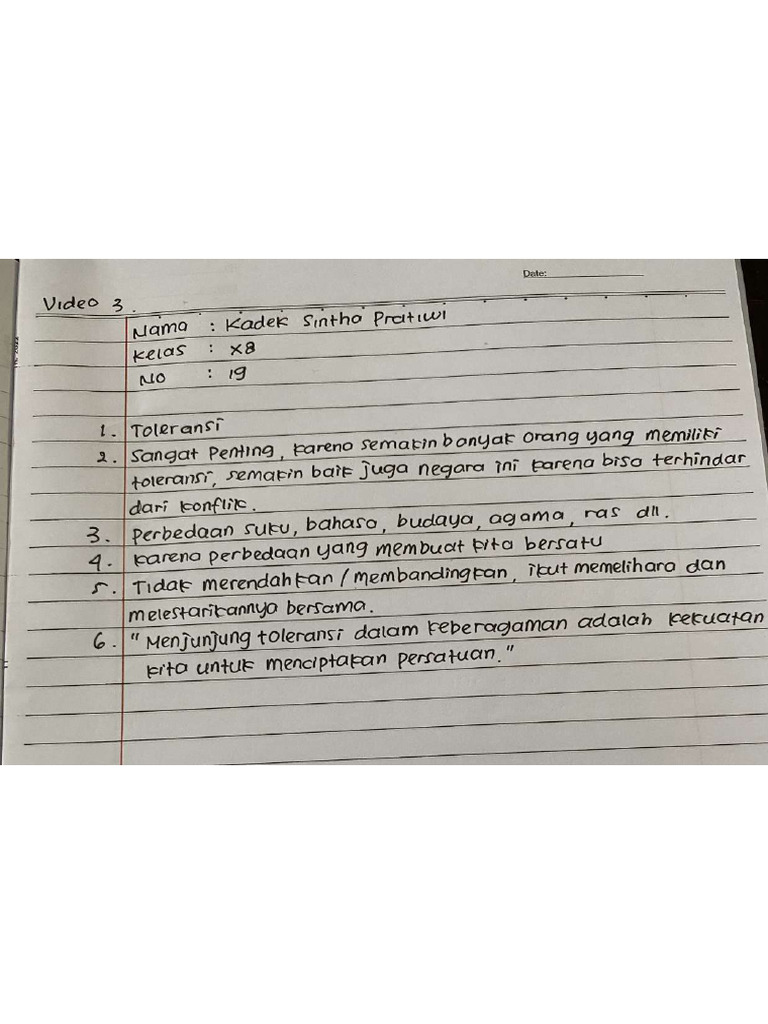 Date:
Video 3.
Nama : Kadek Sintha Pratiwi
Kelas : X8
No : 19
1. Toleransi
2. Sangat Penting, karena semakin banyak orang yang memiliki
toleransi, semakin baik juga negara ini karena bisa terhindar
dari konflik.
3. Perbedaan suku, bahasa, budaya, agama, ras dll.
4. Karena perbedaan yang membuat kita bersatu
5. Tidak merendahkan / membandingkan, ikut memelihara dan
melestarikannya bersama.
6. "Menjunjung toleransi dalam keberagaman adalah kekuatan
kita untuk menciptakan persatuan."